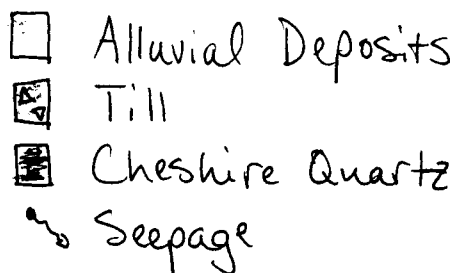 Alluvial Deposits
Till
Cheshire Quartz
Seepage